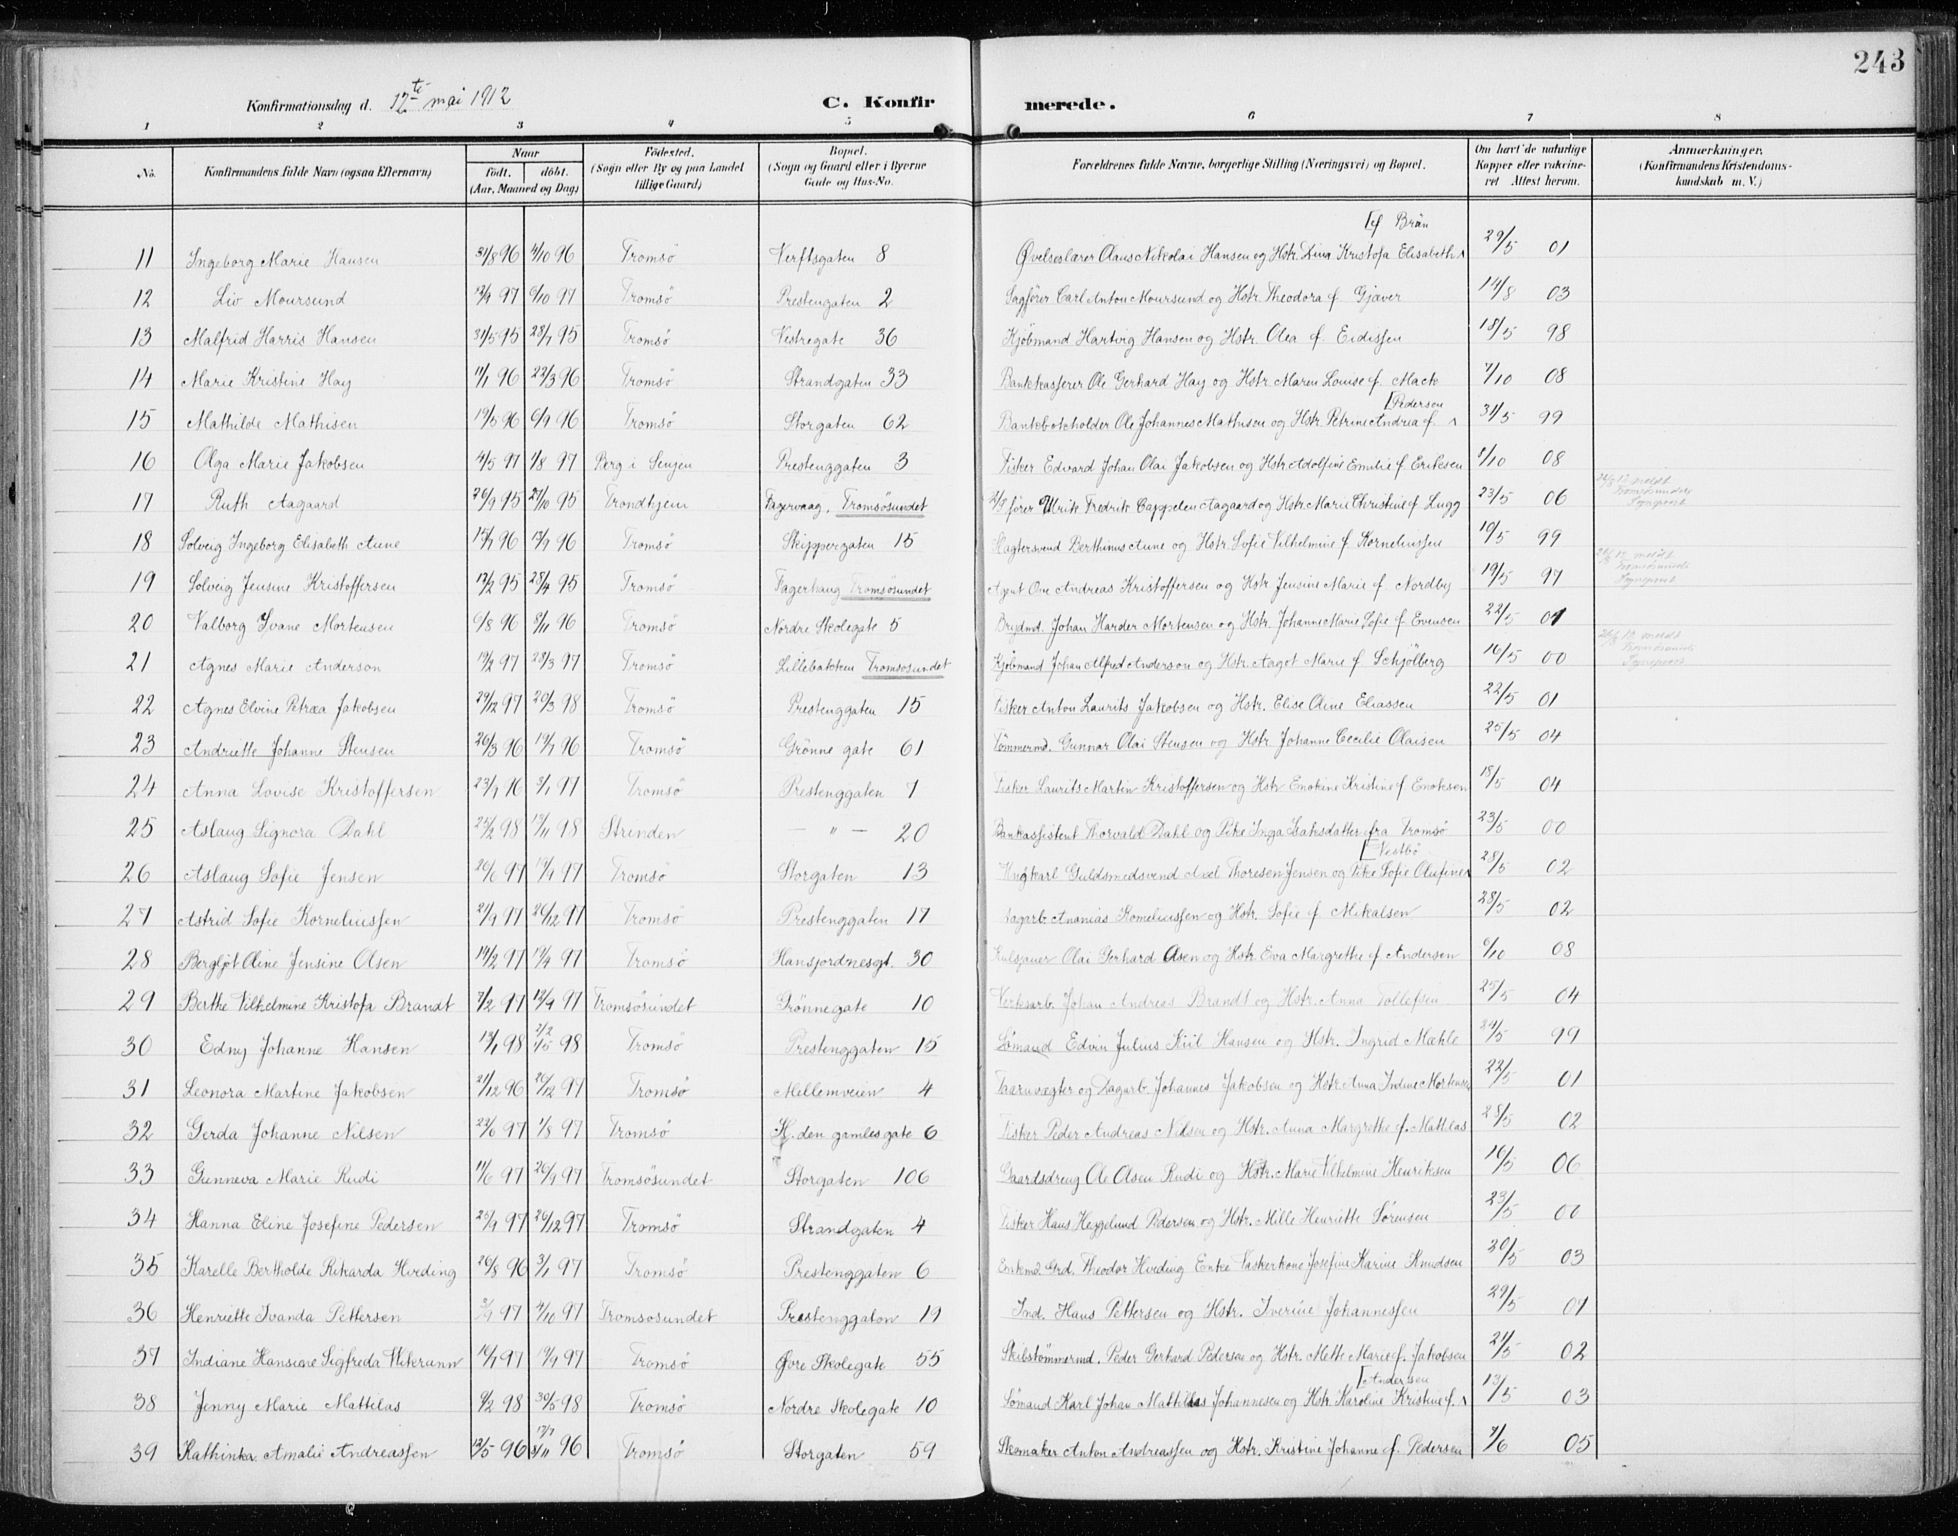 243
Konfirmationsdag d. 12te mai 1912 C. Konfirmerede.
1 2 3 4 5 6 7 8
No. Konfirmandens fulde Navn (ogsaa Efternavn) Naar født. døbt. (Aar, Maaned og Dag) Fødested. (Sogn eller By og paa Landet tillige Gaard) Bopæl. (Sogn og Gaard eller i Byerne Gade og Hus-No. Forældrenes fulde Navne, borgerlige Stilling (Næringsvei) og Bopæl. Om havt de naturlige Kopper eller vakcineret Attest herom. Anmærkninger. (Konfirmandens Kristendomskundskab m. V.)
[f Brün
11 Ingeborg Marie Hansen 31/8 96 4/10 96 Tromsö Verftsgaten 8 Øvelseslærer Olaus Nikolai Hansen og Hstr. Dina Kristofa Elisabeth 29/5 01
12 Liv Moursund 97 6/10 97 Tromsö Prestengaten 2 Sagfører Carl Anton Moursund og Hstr. Theodora f. Gjæver 14/8 03
13 Malfrid Harris Hansen 31/5 95 28/7 95 Tromsö Vestregate 36 Kjöbmand Hartvig Hansen og Hstr. Olea f. Eidissen 18/5 98
14 Marie Kristine Hay 11/1 96 22/3 96 Tromsö Strandgaten 33 Bankkasserer Ole Gerhard Hay og Hstr. Maren Louise f. Mack 7/10 08
[Pedersen
15 Mathilde Mathisen 19/5 96 6/9 96 Tromsö Storgaten 62 Bankbokholder Ole Johannes Mathisen og Hstr. Petrine Andrea f. 31/5 99
16 Olga Marie Jakobsen 4/5 97 1/8 97 Berg i Senjen Prestenggaten 3 Fisker Edvard Johan Olai Jakobsen og Hstr. Adolfine Emilie f. Eriksen 1/10 08
17 Ruth Aagaard 26/9 95 27/10 95 Trondhjem Fagervaag, Tromsösundet fører Ulrik Fredrik Cappelen Aagaard og Hstr. Marie Christine f. Lugg 23/5 06 meldt Tromsøsundets Sogneprest
18 Solveig Ingeborg Elisabeth Aune 96 96 Tromsö Skippergaten 15 Slagtersvend Berthinus Aune og Hstr. Sofie Vilhelmine f. Korneliussen 19/5 99
19 Solveig Jensine Kristoffersen 95 28/4 95 Tromsö Fagerhaug Tromsösundet Agent Ole Andreas Kristoffersen og Hstr. Jensine Marie f. Nordby 19/5 97 meldt Tromsøsunds Sogneprest
20 Valborg Ivane Mortensen 6/8 96 8/11 96 Tromsö Nordre Skolegate 5 Brydmd. Johan Harder Mortensen og Hstr. Johanne Marie Sofie f. Evensen 22/5 01
21 Agnes Marie Anderson 97 28/3 97 Tromsö Lillebakken Tromsösundet Kjöbmand Johan Alfred Anderson og Hstr. Aaget Marie f. Schjölberg 16/5 00 meldt Tromsøsunds Sogneprest
22 Agnes Elvine Petrea Jakobsen 29/12 97 20/3 98 Tromsö Prestenggaten 15 Fisker Anton Laurits Jakobsen og Hstr. Elise Oline Eliassen 22/5 01
23 Andriette Johanne Stensen 26/3 96 96 Tromsö Grönne gate 61 Tömmermd. Gunnar Olai Stensen og Hstr. Johanne Cecilie Olaisen 25/5 04
24 Anna Lovise Kristoffersen 96 3/1 97 Tromsö Prestenggaten 7 Fisker Laurits Martin Kristoffersen og Hstr. Enokine Kristine f. Enoksen 18/5 04
25 Aslaug Signora Dahl 25/2 98 98 Strinden — " — 20 Bankassistent Thorvald Dahl og Pike Inga Isaksdatter fra Tromsö 23/5 00
[Vestbö
26 Aslaug Sofie Jensen 20/6 97 97 Tromsö Storgaten 13 Ungkarl Guldsmedsvend Axel Thoresen Jensen og Pike Sofie Olufine 28/5 02
27 Astrid Sofie Korneliussen 21/9 97 26/12 97 Tromsö Prestenggaten 17 Dagarb. Ananias Korneliussen og Hstr. Sofie f. Mikalsen 28/5 02
28 Bergljot Oline Jensine Olsen 14/2 97 97 Tromsö Hansjordnesgt. 30 Kulsjauer Olai Gerhard Olsen og Hstr. Eva Margrethe f. Andersen 6/10 08
29 Berthe Vilhelmine Kristofa Brandt 7/2 97 97 Tromsösundet Grönnegate 10 Verksarb. Johan Andreas Brandt og Hstr. Anna Tollefsen 25/5 04
30 Edny Johanne Hansen 98 98 Tromsö Prestenggaten 15 Sömand Edvin Julius Kiil Hansen og Hstr. Ingrid Mæhle 24/5 99
31 Leonora Martine Jakobsen 21/12 96 26/12 97 Tromsö Mellemveien 4 Taarnvægter og Dagarb. Johannes Jakobsen og Hstr. Anna Indine Mortensen 22/5 01
32 Gerda Johanne Nilsen 22/6 97 1/8 97 Tromsö H. den gamles gate 6 Fisker Peder Andreas Nilsen og Hstr. Anna Margrethe f. Mattilas 28/5 02
33 Gunneva Marie Rudi 11/6 97 97 Tromsösundet Storgaten 106 Gaardsdreng Ole Olsen Rudi og Hstr. Marie Vilhelmine Henriksen 16/5 06
34 Hanna Eline Josefine Pedersen 25/9 97 26/12 97 Tromsö Strandgaten 4 Fisker Hans Heggelund Pedersen og Hstr. Mille Henriette Sörensen 23/5 00
35 Karelle Bertholde Rikarda Hveding 26/8 96 3/1 97 Tromsö Prestenggaten 6 Enkmd. Grd. Theodor Hveding Enke Vaskerkone Josefine Karine Knudsen 20/5 03
36 Henriette Ivanda Pettersen 97 4/10 97 Tromsosundet Prestenggaten 19 Ind. Hans Pettersen og Hstr. Iverine Johannessen 29/5 01
37 Indiane Hansine Sigfreda Wikrann 97 97 Tromsö Øvre Skolegate 55 Skibstömmermd. Peder Gerhard Pedersen og Hstr. Mette Marie f. Jakobsen 21/5 02
[Andersen
38 Jenny Marie Mattilas 9/2 98 30/5 98 Tromsö Nordre Skolegate 10 Sömand Karl Johan Mattilas Johannesen og Hstr. Karoline Kristine f. 13/5 03
39 Kathinka Amalie Andreassen 13/5 96 8/11 96 Tromsö Storgaten 59 Skomaker Anton Andreassen og Hstr. Kristine Johanne f. Pedersen 7/6 05